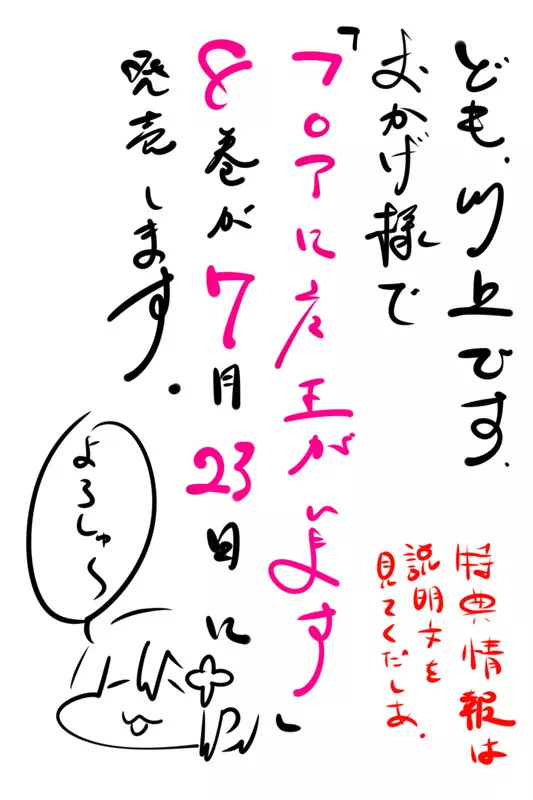 ども、川上です.
おかげ様で
「フロアに魔王がいます」
8巻が7月23日に
発売します。
よろしゅ〜
特典情報は
説明文を
見てくだしあ.